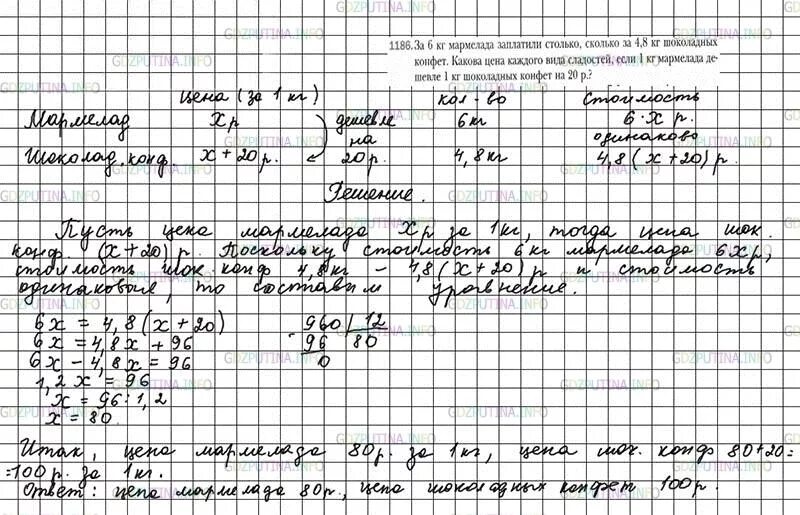 1186. За 6 кг мармелада заплатили столько, сколько за 4,8 кг шоколадных
конфет. Какова цена каждого вида сладостей, если 1 кг мармелада де-
шевле 1 кг шоколадных конфет на 20 р.?
цена (за 1 кг) кол-во стоимость
Мармелад х р дешевле 6 кг 6·х р.
на одинаково
Шоколад. конф. х + 20 р. 20 р. 4,8 кг 4,8(х+20) р.
Решение.
Пусть цена мармелада х р за 1 кг, тогда цена шок.
конф. (х+20) р. Поскольку стоимость 6 кг мармелада 6х р,
стоимость шок. конф 4,8 кг – 4,8(х+20) р и стоимость
одинаковые, то составим уравнение.
6х = 4,8(х+20)
6х = 4,8х + 96
6х – 4,8х = 96
1,2х = 96
х = 96 : 1,2
х = 80
960 | 12
- 96 80
0
Итак, цена мармелада 80 р. за 1 кг, цена шок. конф 80+20=
=100 р. за 1 кг.
Ответ: цена мармелада 80 р., цена шоколадных конфет 100 р.
GDZPUTINA.INFO